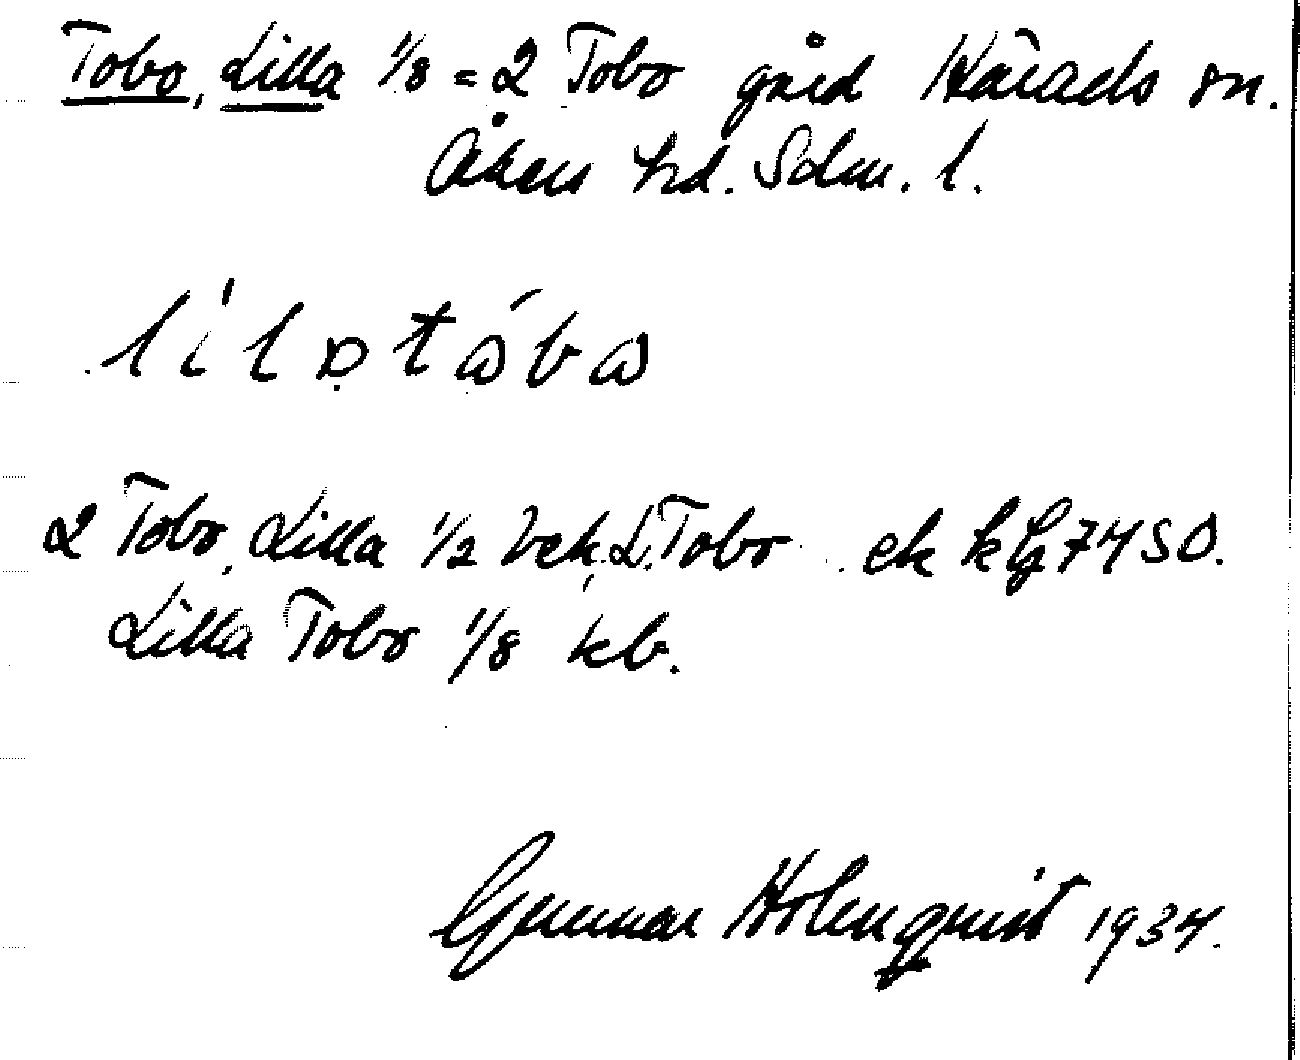 Tobo, Lilla 1/8 = 2 Tobo gård Härads sn.
Åkers hd. Sdm. l.
2 Tobo, Lilla 1/2 L. Tobo ek 74 SO.
Lilla Tobo 1/8 kb.
Gunnar Holmquist 1934.